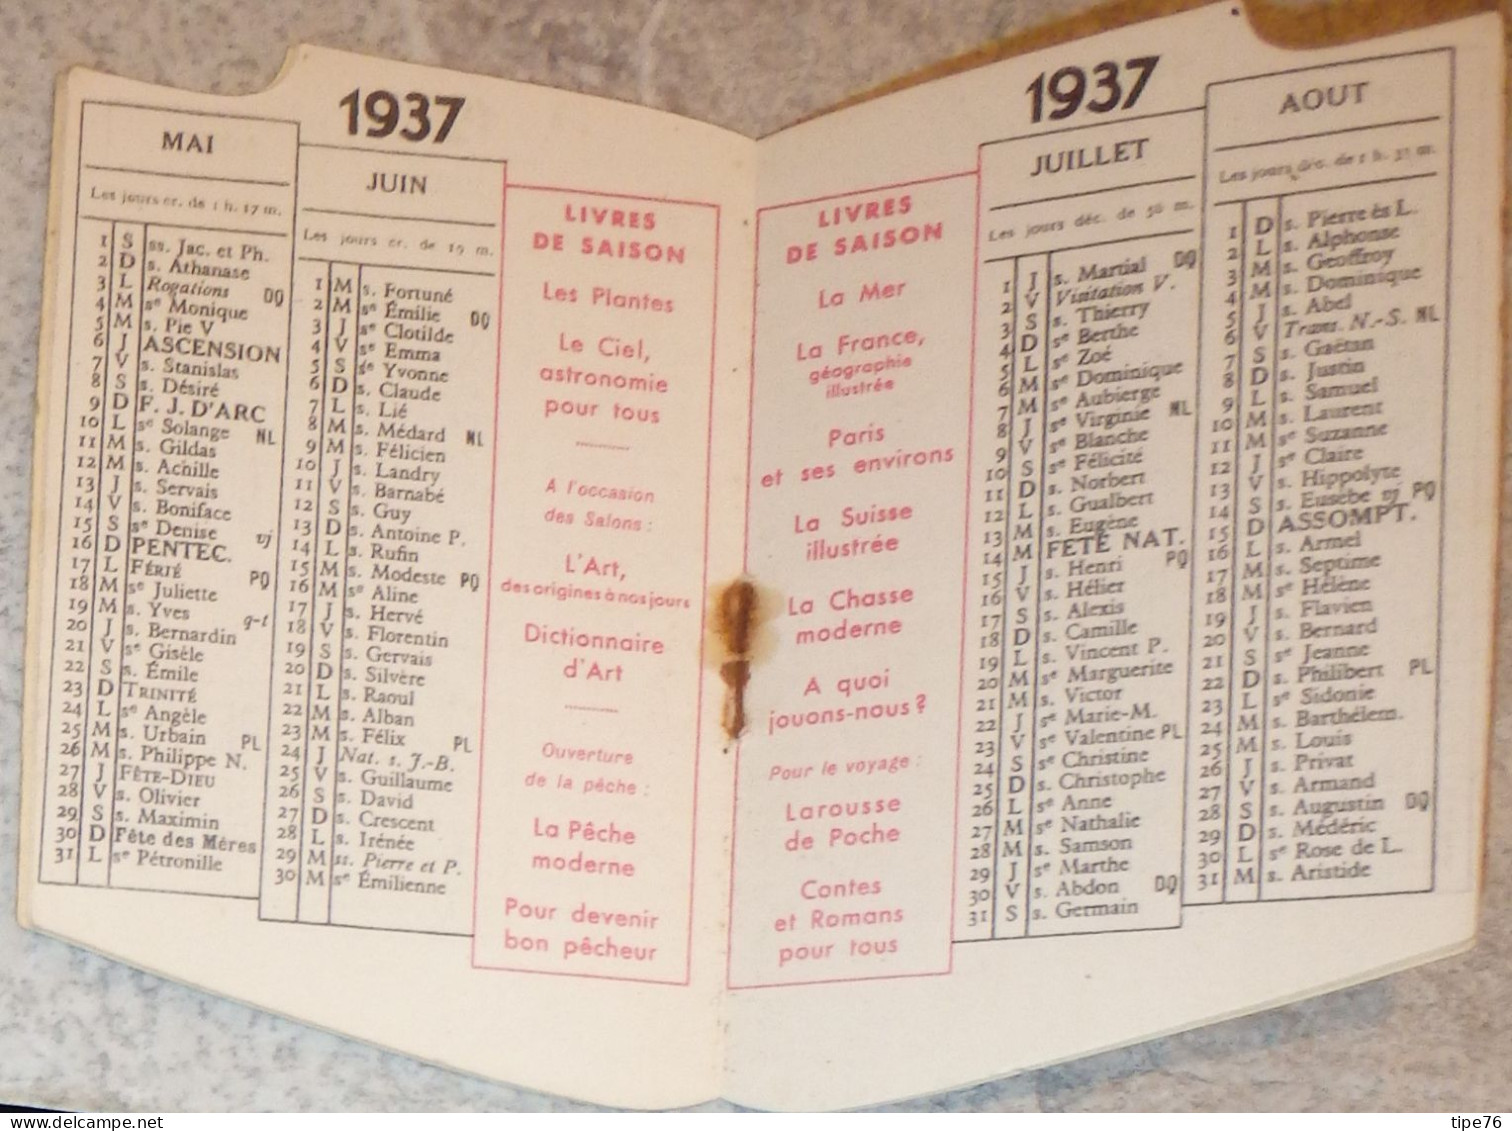 1937
MAI
Les jours cr. de 1 h. 17 m.
1 S ss. Jac. et Ph.
2 D s. Athanase
3 L Rogations DQ
4 M se Monique
5 M s. Pie V
6 J ASCENSION
7 V s. Stanislas
8 S s. Désiré
9 D F. J. D'ARC
10 L se Solange NL
11 M s. Gildas
12 M s. Achille
13 J s. Servais
14 V s. Boniface
15 S se Denise vj
16 D PENTEC.
17 L FÉRIÉ PQ
18 M se Juliette
19 M s. Yves q-t
20 J s. Bernardin
21 V se Gisèle
22 S s. Émile
23 D TRINITÉ
24 L se Angèle
25 M s. Urbain PL
26 M s. Philippe N.
27 J FÊTE-DIEU
28 V s. Olivier
29 S s. Maximin
30 D Fête des Mères
31 L se Pétronille
JUIN
Les jours cr. de 19 m.
1 M s. Fortuné
2 M se Émilie DQ
3 J se Clotilde
4 V se Emma
5 S se Yvonne
6 D s. Claude
7 L s. Lié
8 M s. Médard NL
9 M s. Félicien
10 J s. Landry
11 V s. Barnabé
12 S s. Guy
13 D s. Antoine P.
14 L s. Rufin
15 M s. Modeste PQ
16 M se Aline
17 J s. Hervé
18 V s. Florentin
19 S s. Gervais
20 D s. Silvère
21 L s. Raoul
22 M s. Alban
23 M s. Félix PL
24 J Nat. s. J.-B.
25 V s. Guillaume
26 S s. David
27 D s. Crescent
28 L s. Irénée
29 M ss. Pierre et P.
30 M se Émilienne
LIVRES
DE SAISON
Les Plantes
Le Ciel,
astronomie
pour tous
A l'occasion
des Salons :
L'Art,
des origines à nos jours
Dictionnaire
d'Art
Ouverture
de la pêche :
La Pêche
moderne
Pour devenir
bon pêcheur
1937
LIVRES
DE SAISON
La Mer
La France,
géographie
illustrée
Paris
et ses environs
La Suisse
illustrée
La Chasse
moderne
A quoi
jouons-nous ?
Pour le voyage :
Larousse
de Poche
Contes
et Romans
pour tous
JUILLET
Les jours déc. de 56 m.
1 J s. Martial DQ
2 V Visitation V.
3 S s. Thierry
4 D se Berthe
5 L se Zoé
6 M se Dominique
7 M se Aubierge
8 J se Virginie NL
9 V se Blanche
10 S se Félicité
11 D s. Norbert
12 L s. Gualbert
13 M s. Eugène
14 M FETE NAT.
15 J s. Henri PQ
16 V s. Hélier
17 S s. Alexis
18 D s. Camille
19 L s. Vincent P.
20 M se Marguerite
21 M s. Victor
22 J se Marie-M.
23 V se Valentine PL
24 S se Christine
25 D s. Christophe
26 L se Anne
27 M se Nathalie
28 M s. Samson
29 J se Marthe
30 V s. Abdon DQ
31 S s. Germain
AOUT
Les jours déc. de 1 h. 31 m.
1 D s. Pierre ès L.
2 L s. Alphonse
3 M s. Geoffroy
4 M s. Dominique
5 J s. Abel
6 V Trans. N.-S. NL
7 S s. Gaëtan
8 D s. Justin
9 L s. Samuel
10 M s. Laurent
11 M se Suzanne
12 J se Claire
13 V s. Hippolyte
14 S s. Eusèbe vj PQ
15 D ASSOMPT.
16 L s. Armel
17 M s. Septime
18 M se Hélène
19 J s. Flavien
20 V s. Bernard
21 S se Jeanne
22 D s. Philibert PL
23 L se Sidonie
24 M s. Barthélem.
25 M s. Louis
26 J s. Privat
27 V s. Armand
28 S s. Augustin DQ
29 D s. Médéric
30 L se Rose de L.
31 M s. Aristide
©delcampe.net
tipe76